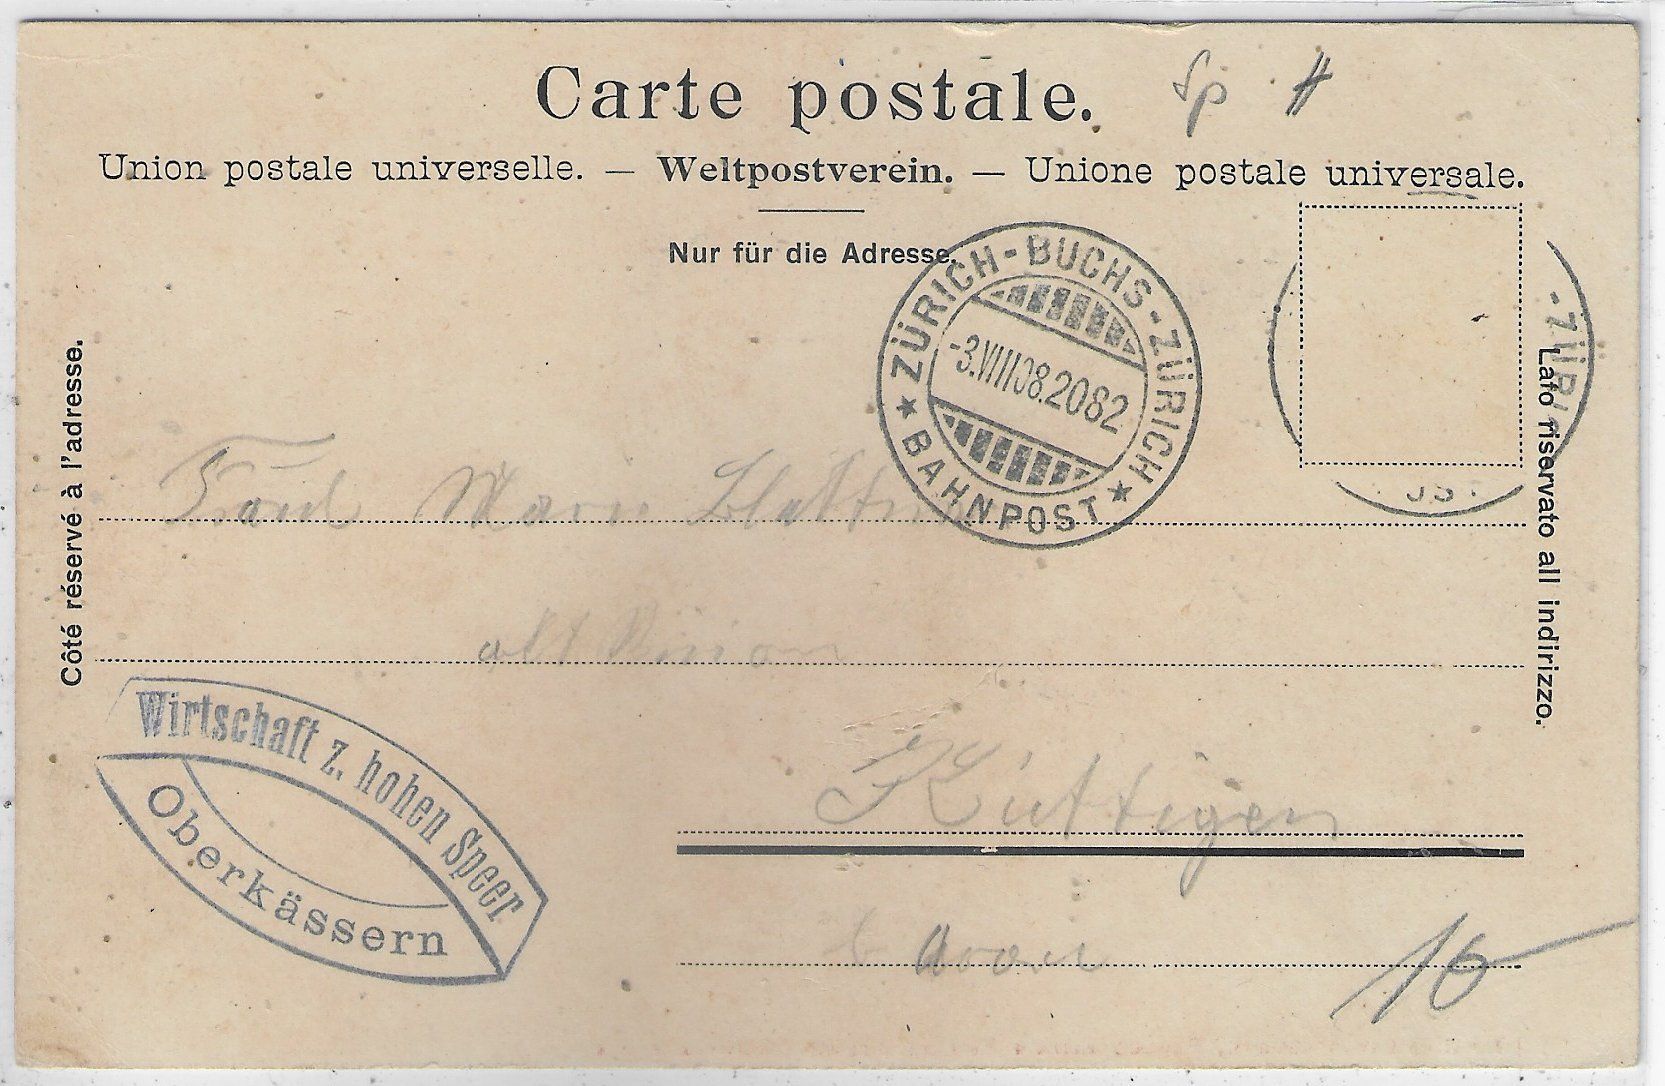 Carte postale.
Sp #
Union postale universelle. — Weltpostverein. — Unione postale universale.
Nur für die Adresse.
ZÜRICH-BUCHS-ZÜRICH
-3.VIII08.2082
★ BAHNPOST ★
-ZÜRI
Côté réservé à l'adresse.
Lato riservato all indirizzo.
Marie
alt
Küttigen
Wirtschaft z. hohen Speer
Oberkässern
10